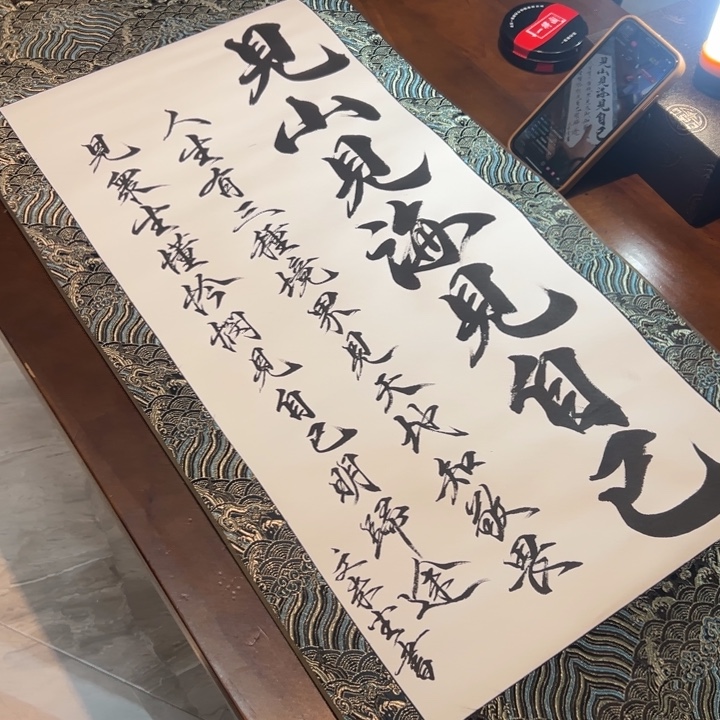 見山見海見自己
人生有三種境界見天地知敬畏
見衆生懂怜憫見自己明歸途
書
見山見海見自己